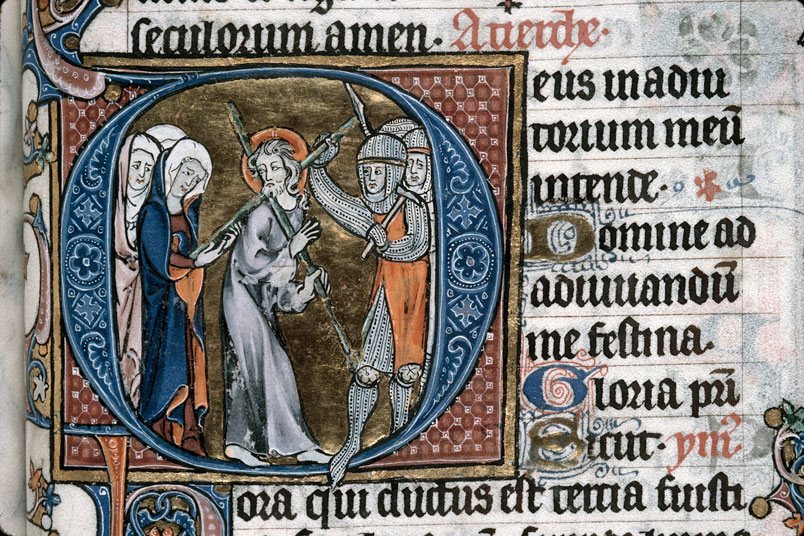 seculorum amen. A tierche.
eus in adiu
torium meū
intende.
Domine ad
adiuuandū
me festina.
Gloria pr̄i
Sicut. ym̄.
ora qui ductus est tercia fuisti